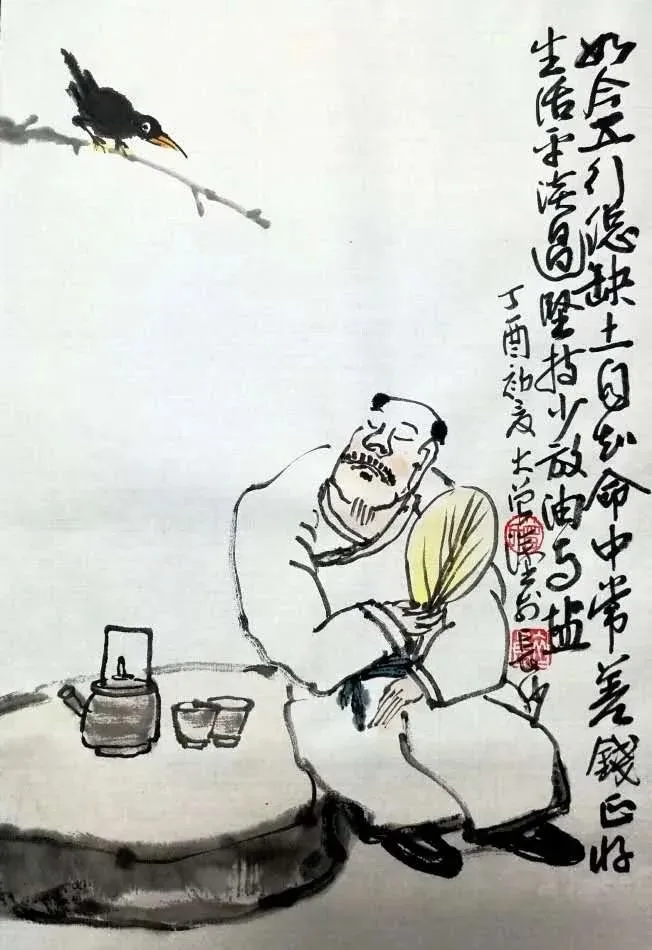 如今五行總缺土自知命中常差錢正好
生活平淡過堅持少放油与盐
丁酉初夏大長沙